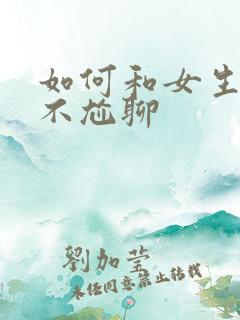 如何和女生
不尬聊
劉加莹
未经同意禁止转载